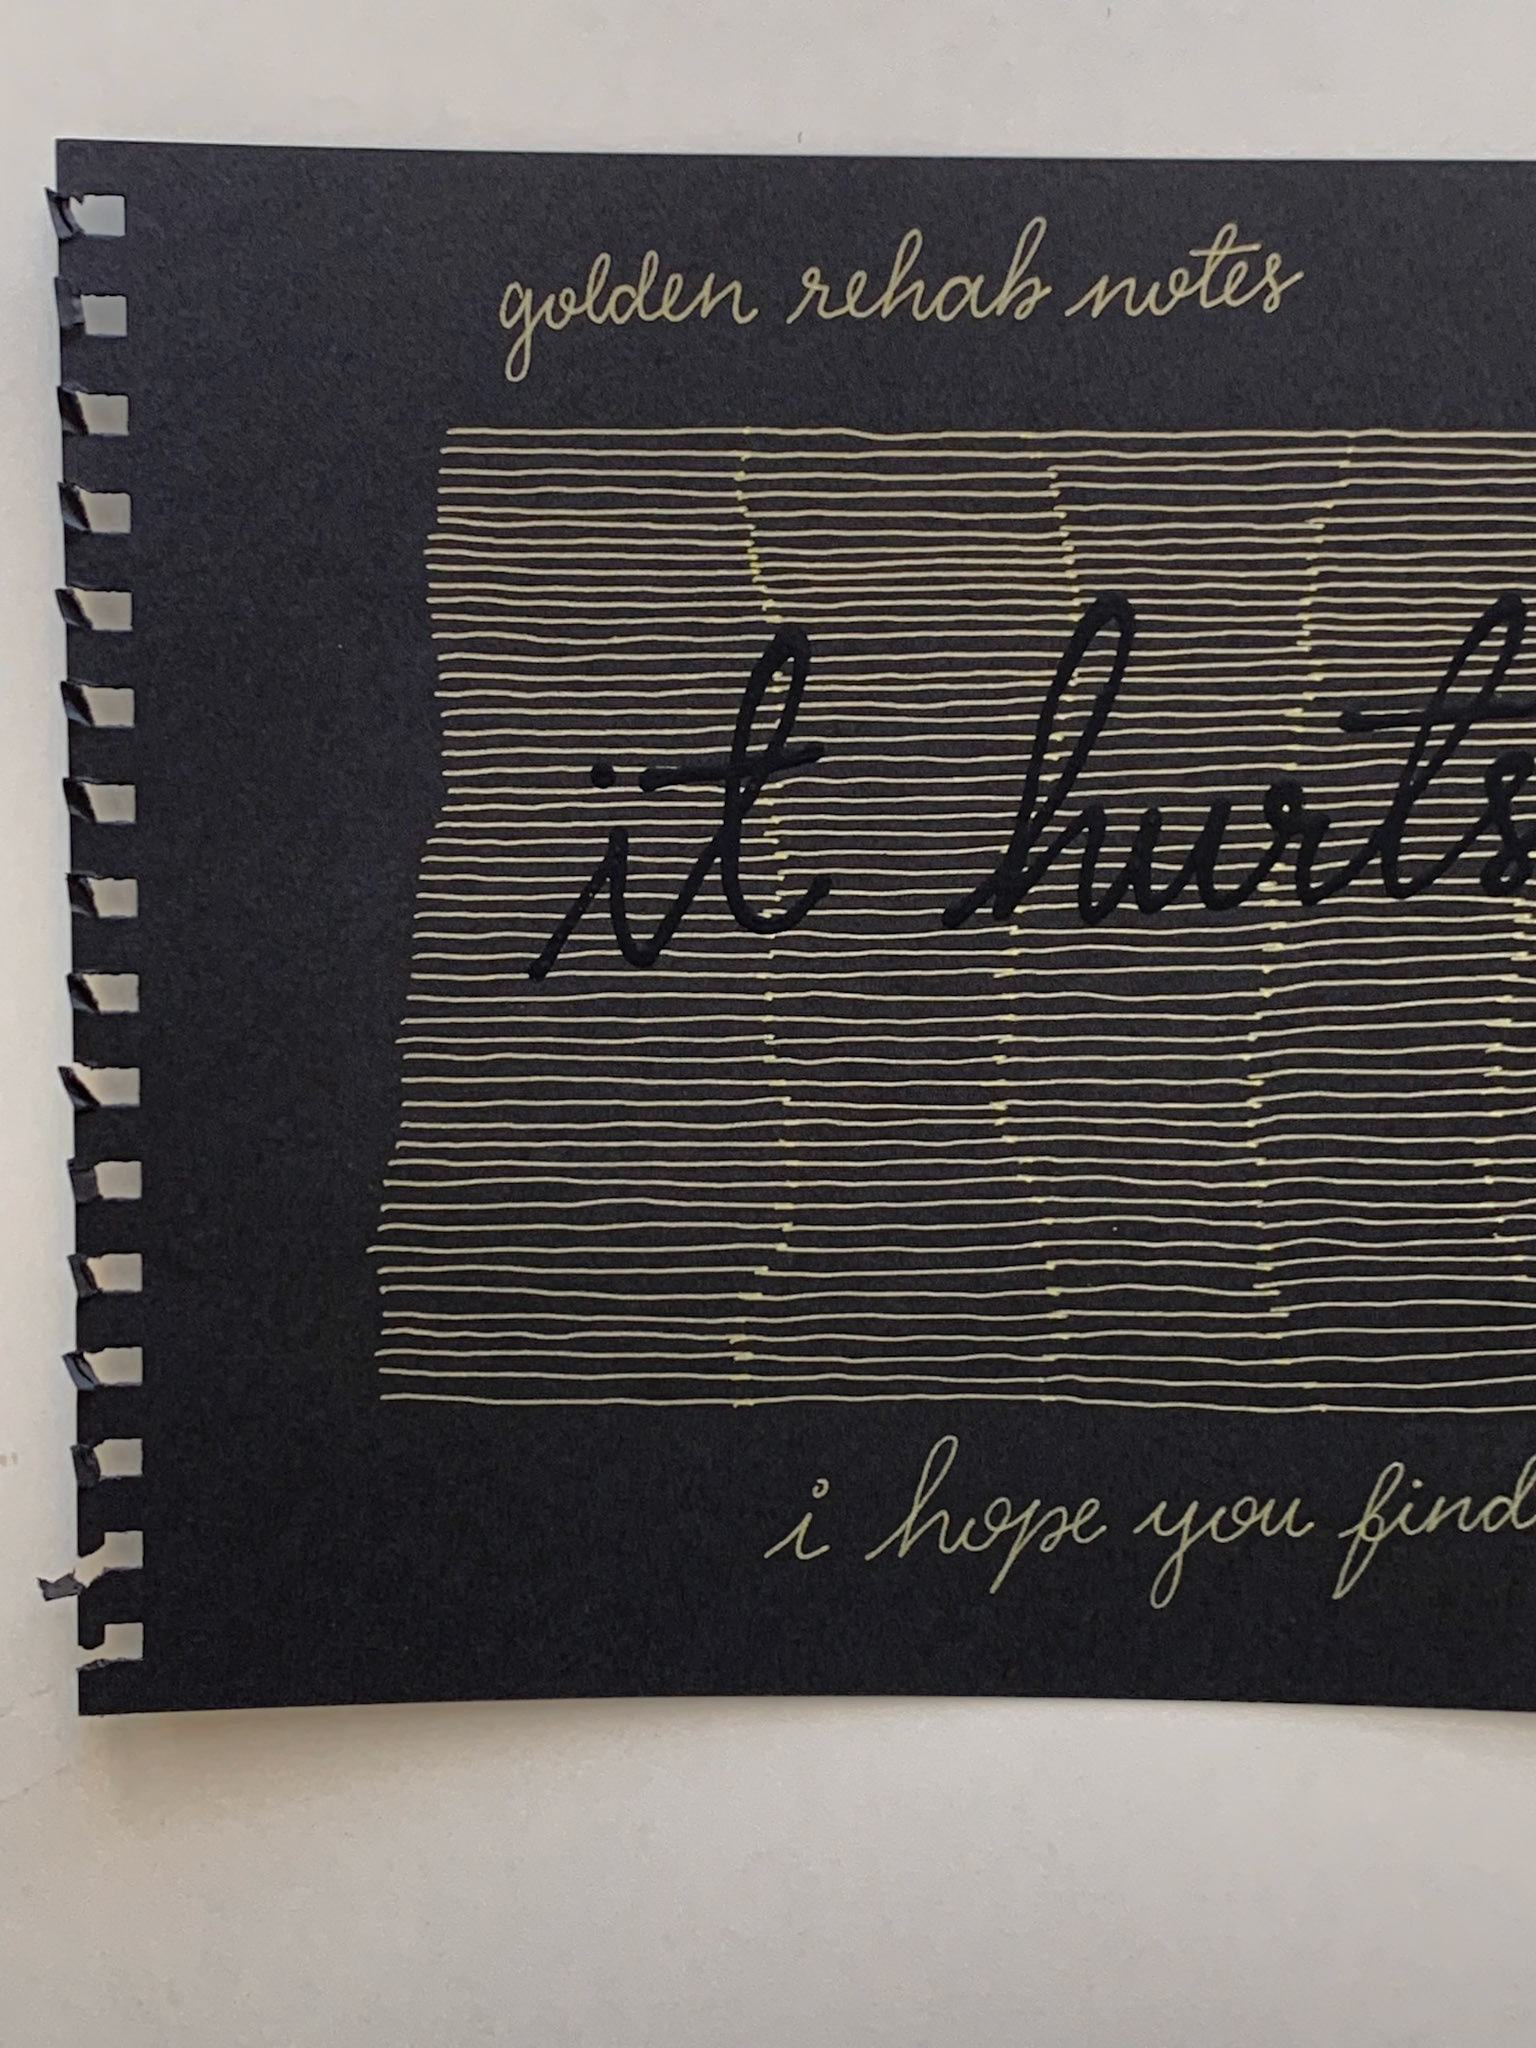 golden rehab notes
it hurts
i hope you find